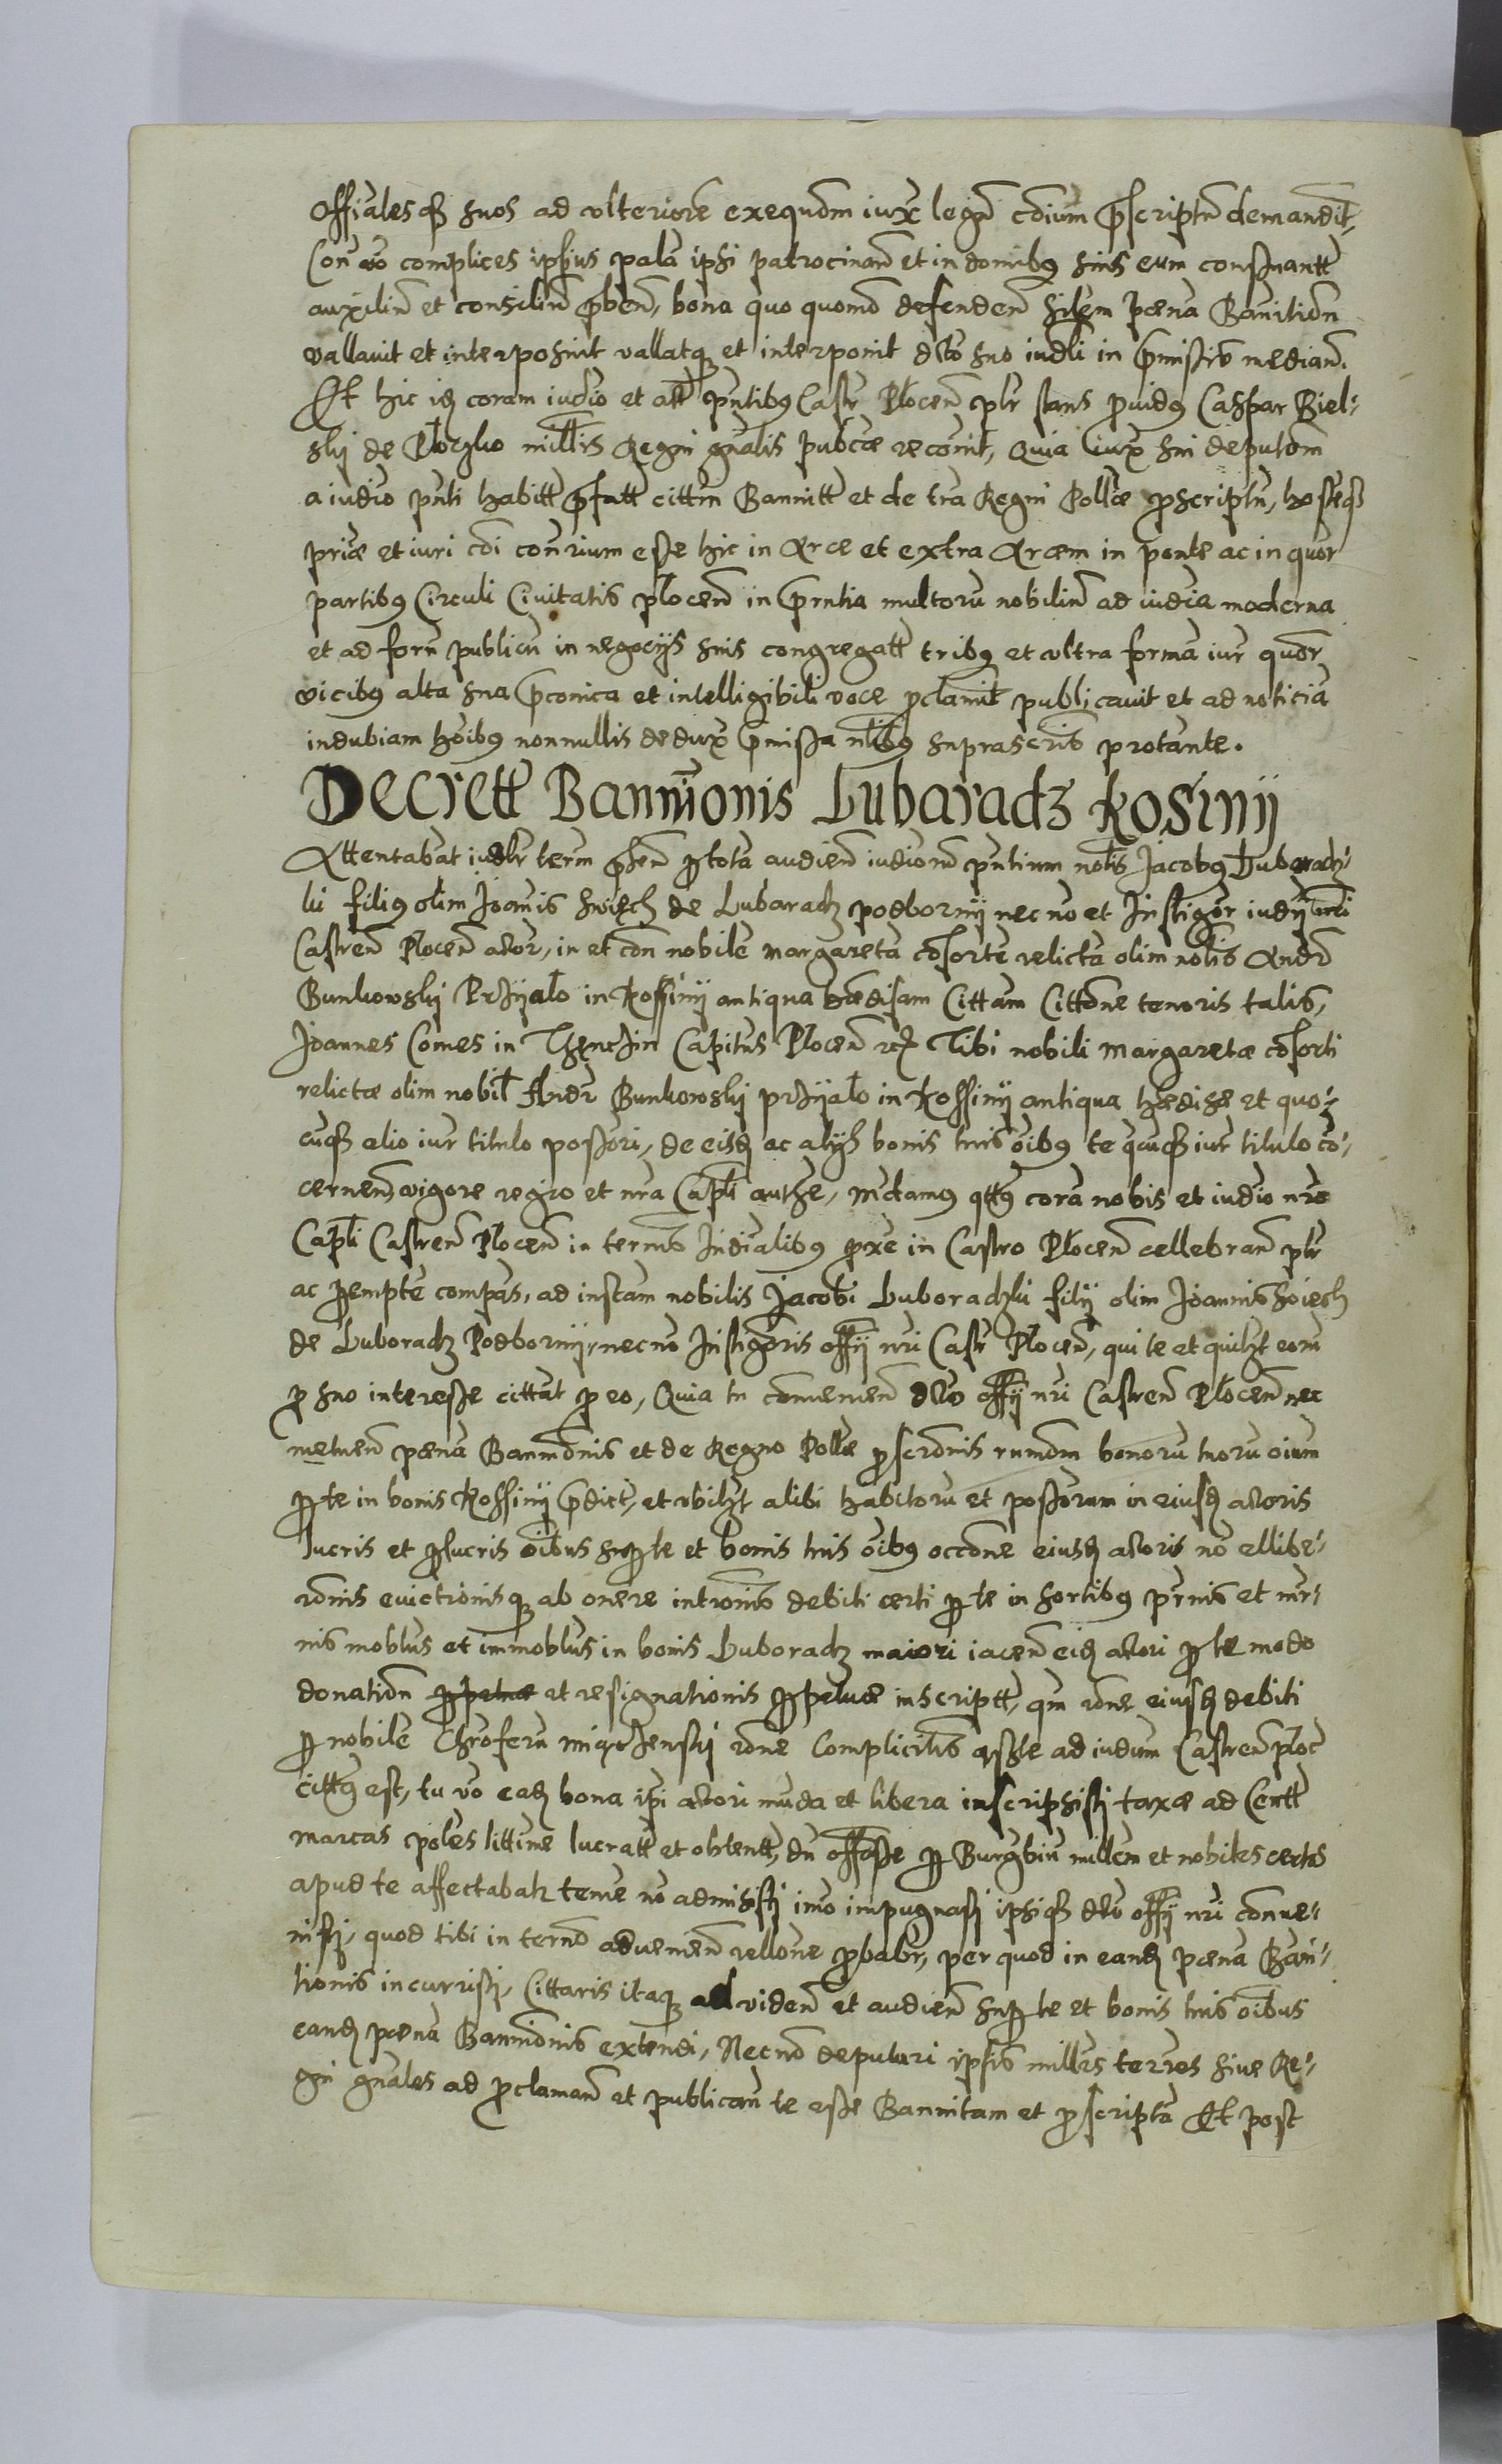 Offiales q3 suos ad vlteriore exequom iux legu coium pscriptu demandit,
Con vo complices ipsius pala ipsi patrocinan et in domibus suis eum consuantt
auxiliu et consiliu pben, bona quo quomo defenden silem pæna Banition
vallauit et interposuit vallatq et interponit dcto suo iudli in pmissis median.
Et hic id coram iudio et att pntibus Castr Plocen plr stans prouidus Caspar Biel-
skj de Ploczko millis Regni gnalis publce recouit, Quia iux sui deputom
a iudio pnti habitt pfatt cittm Bannitt et de tra Regni Pollæ proscriptu, hosteq3
priæ et iuri coi conrium esse hic in Arce et extra Arcem in ponte ac in quor
partibus Circuli Ciuitatis plocen in pntia multoru nobiliu ad iudia moderna
et ad foru publicu in negocijs suis congregatt tribus et vltra forma iur quor
vicibus alta sua pconica et intelligibili voce proclamit publicauit et ad noticia
indubiam hoibus nonnullis dedux pmissa nlibus suprascris protante.
Decrett Bannionis Lubaradz Kosinij
Attentabat iudlr term psen pro tota audien iudioru pntium noblis Jacobus Lubaradz-
ki filius olim Joanis Swięch de Lubaradz podbornij nec no et Instigor iudij nri
Castren Plocen actor, in et con nobile Margareta cosorte relicta olim noblis Andr
Bunkowskj Przijalo in Kossinij antiqua hædisam Cittam Cittone tenoris talis,
Joannes Comes in Thenczin Capitus Plocen etc Tibi nobili Margaretæ cosorti
relictæ olim nobil Andr Bunkowskj przijalo in Kossinij antiqua hædisæ et quo-
cuq3 alio iur titulo possori, de eisd ac alijs bonis tuis oibus te qcuq3 iur titulo co-
cernen, vigore regio et nra Capli authe, Mdamus qttus cora nobis et iudio nro
Capli Castren Plocen in termis Iudialibus proxe in Castro Plocen cellebran plr
ac perempte compas, ad instam nobilis Jacobi Luboradzki filij olim Joannis Swięch
de Luboradz Podbornij, necno Instigoris offij nri Castr Plocen, qui te et quilzt eoru
pro suo interesse cittat pro eo, Quia tu conuenien dcto offij nri Castren Plocen nec
metuen pæna Bannionis et de Regno Pollæ proscronis bonoru tuoru oium
per te in bonis Kossinij pdict, et vbilzt alibi habitoru et possorum in eiusd actoris
lucris et perlucris oibus super te et bonis tuis oibus occone eiusd actoris no ellibe-
ronis euictionisq ab onere introniis debiti certi per te in sortibus prnis et mr-
nis moblus et immoblus in bonis Luboradz maiori iacen eid actori per te modo
donation perpetuæ et resignationis perpetuæ inscriptt, qm rone eiusd debiti
per nobile Chroferu rone Complicitis ad iudum Castren ploc
cittus est, tu vo ead bona ipi actori nuda et libera inscripsistj taxæ ad Centt
marcas poles littime lucratt et obtentt, du offose per Burgbiu millem et nobiles certos
apud te affectabatr teme no admisistj imo impugnastj ipsiq3 dcto offij nri conue-
nistj, quod tibi in termo aduenien rellone probabr, per quod in eand pæna Ban-
tionis incurristj, Cittaris itaq ad viden et audien super te et bonis tuis oibus
eand pæna Bannionis extendi, Necno deputari ipsis millrs terres siue Re-
gni gnales ad proclaman et publican te esse Bannitam et proscripta Et post